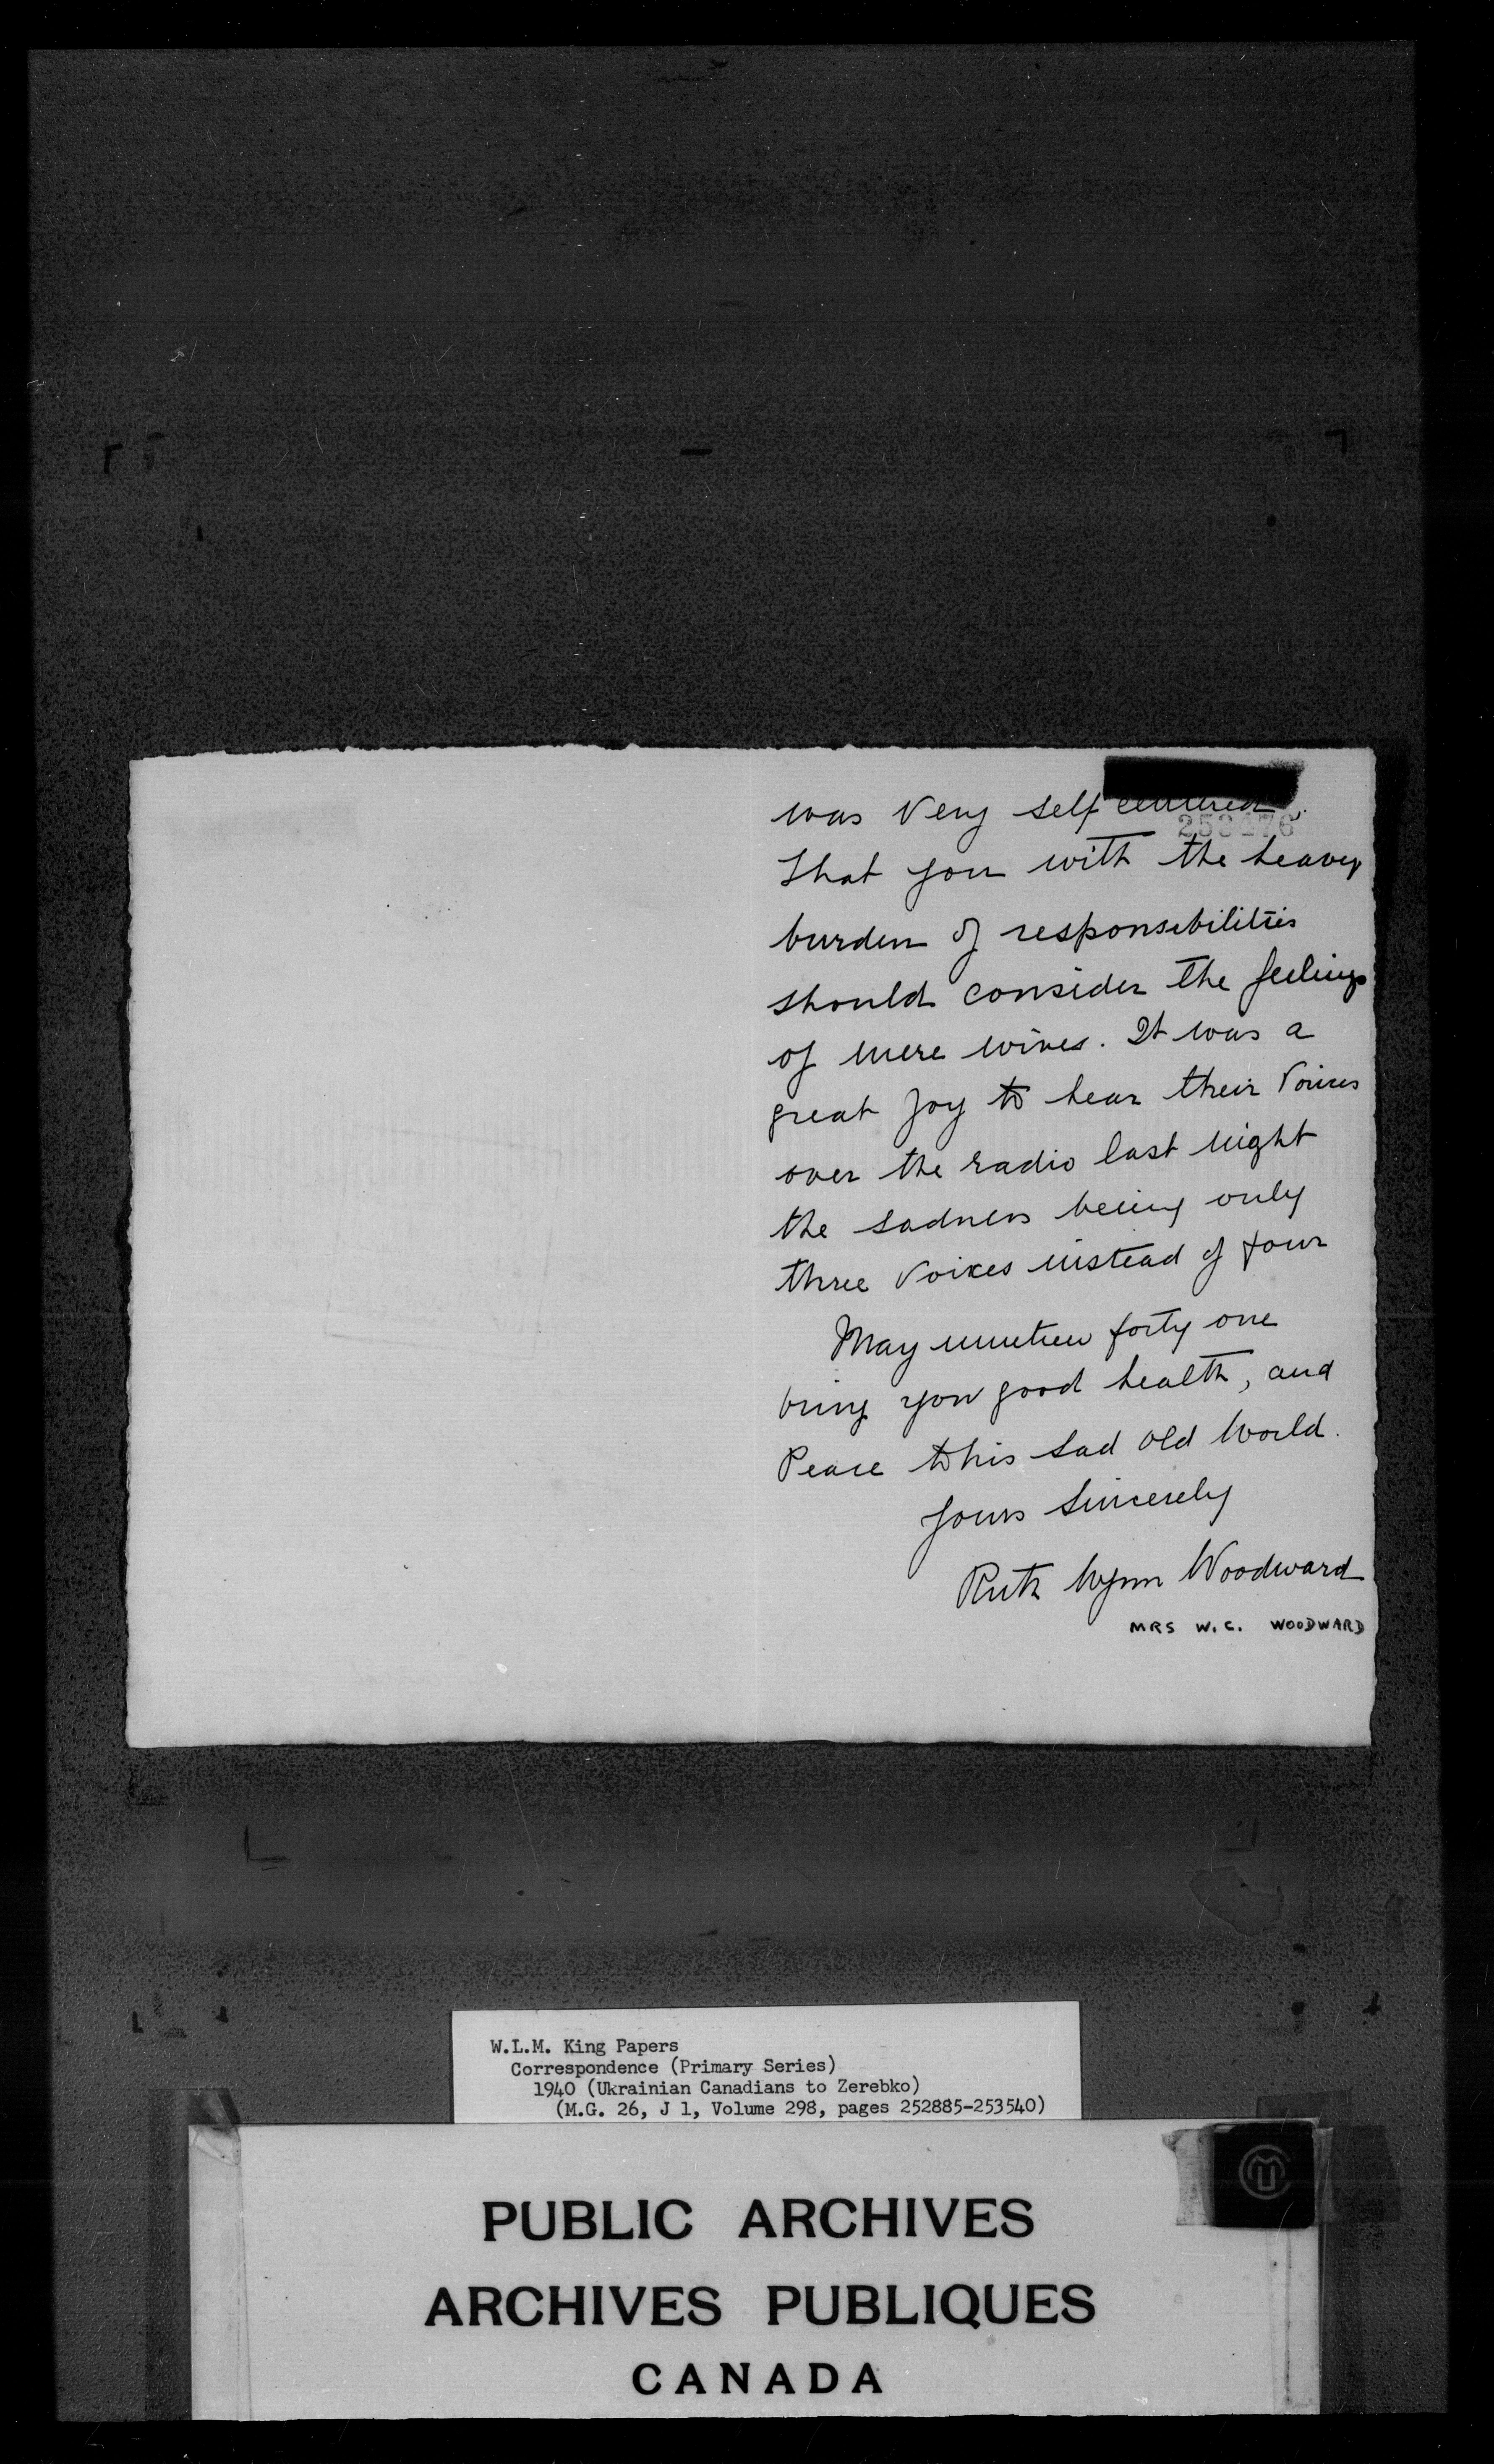 was very self centered.
253476
That you with the heavy
burden of responsibilities
should consider the feelings
of mere wives. It was a
great joy to hear their voices
over the radio last night
the sadness being only
three voices instead of four
May nineteen forty one
bring you good health, and
Peace to this sad old world.
Yours sincerely
Ruth Wynn Woodward
MRS W.C. WOODWARD
W.L.M. King Papers
Correspondence (Primary Series)
1940 (Ukrainian Canadians to Zerebko)
(M.G. 26, J 1, Volume 298, pages 252885-253540)
PUBLIC ARCHIVES
ARCHIVES PUBLIQUES
CANADA